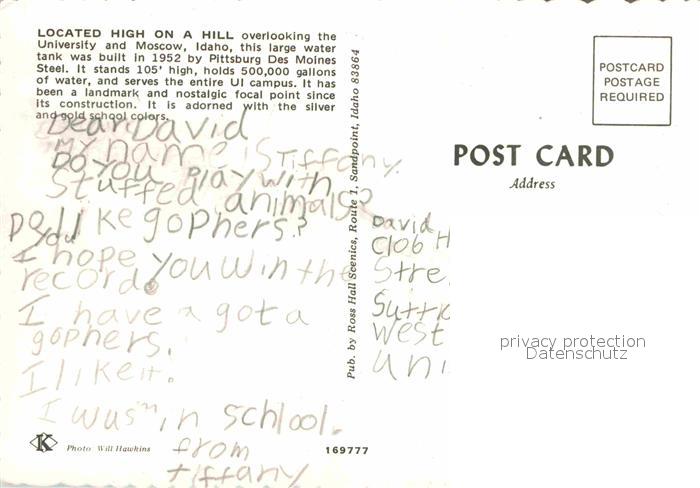 LOCATED HIGH ON A HILL overlooking the
University and Moscow, Idaho, this large water
tank was built in 1952 by Pittsburg Des Moines
Steel. It stands 105' high, holds 500,000 gallons
of water, and serves the entire UI campus. It has
been a landmark and nostalgic focal point since
its construction. It is adorned with the silver
and gold school colors.
Dear David
My name is Tiffany.
Do you play with
stuffed animals?
Do you like gophers?
I hope you win the
record.
I have a got a
gophers.
I like it.
I was in school.
from
tiffany
Photo Will Hawkins
169777
Pub. by Ross Hall Scenics, Route 1, Sandpoint, Idaho 83864
POSTCARD
POSTAGE
REQUIRED
POST CARD
Address
David
Clob H
Stre
West
uni
privacy protection
Datenschutz